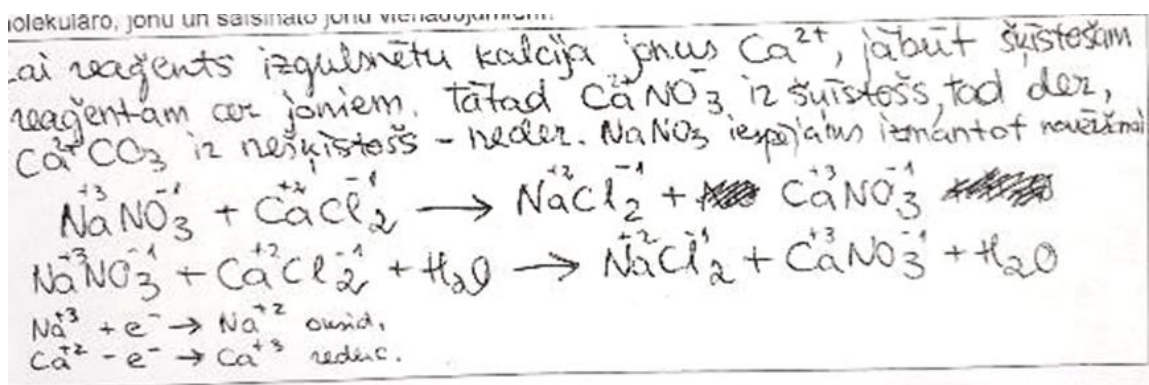 molekulāro, jonu un saīsināto jonu vienādojumiem.
Lai reaģents izgulsnētu kalcija jonus Ca²⁺, jābūt šķīstošam
reaģentam ar joniem. Tātad Ca²⁺NO₃⁻ ir šķīstošs, tad der,
Ca²⁺CO₃ ir nešķīstošs - neder. NaNO₃ iespējams izmantot
Na⁺³NO₃⁻¹ + Ca⁺²Cl₂⁻¹ → Na⁺²Cl₂⁻¹ + Ca⁺³NO₃⁻¹
Na⁺³NO₃⁻¹ + Ca⁺²Cl₂⁻¹ + H₂O → Na⁺²Cl₂⁻¹ + Ca⁺³NO₃⁻¹ + H₂O
Na⁺³ + e⁻ → Na⁺² oksid.
Ca⁺² - e⁻ → Ca⁺³ reduc.